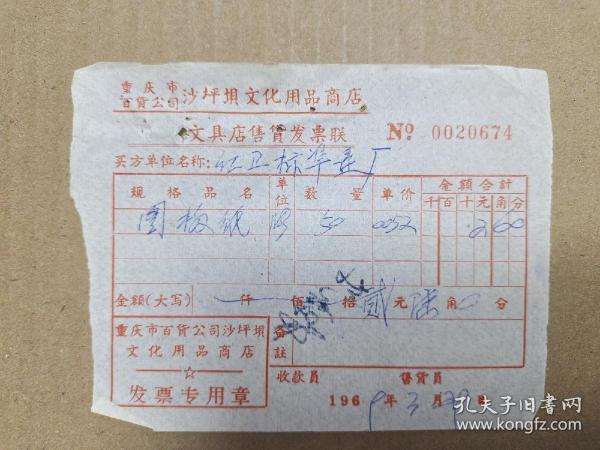 重庆市百貨公司 沙坪坝文化用品商店
文具店售貨发票联 № 0020674
买方单位名称: 红卫标准美厂
規格品名 单位 数量 单价 金額合計
千 百 十 元 角 分
图板纸 张 50 0052 2 6 0
金額(大写) 仟 佰 拾 贰 元 陆 角 0 分
重庆市百貨公司沙坪坝
文化用品商店
☆
发票专用章
备註
收款员 售貨员
1969年3月 日
孔夫子旧书网
www.kongfz.com